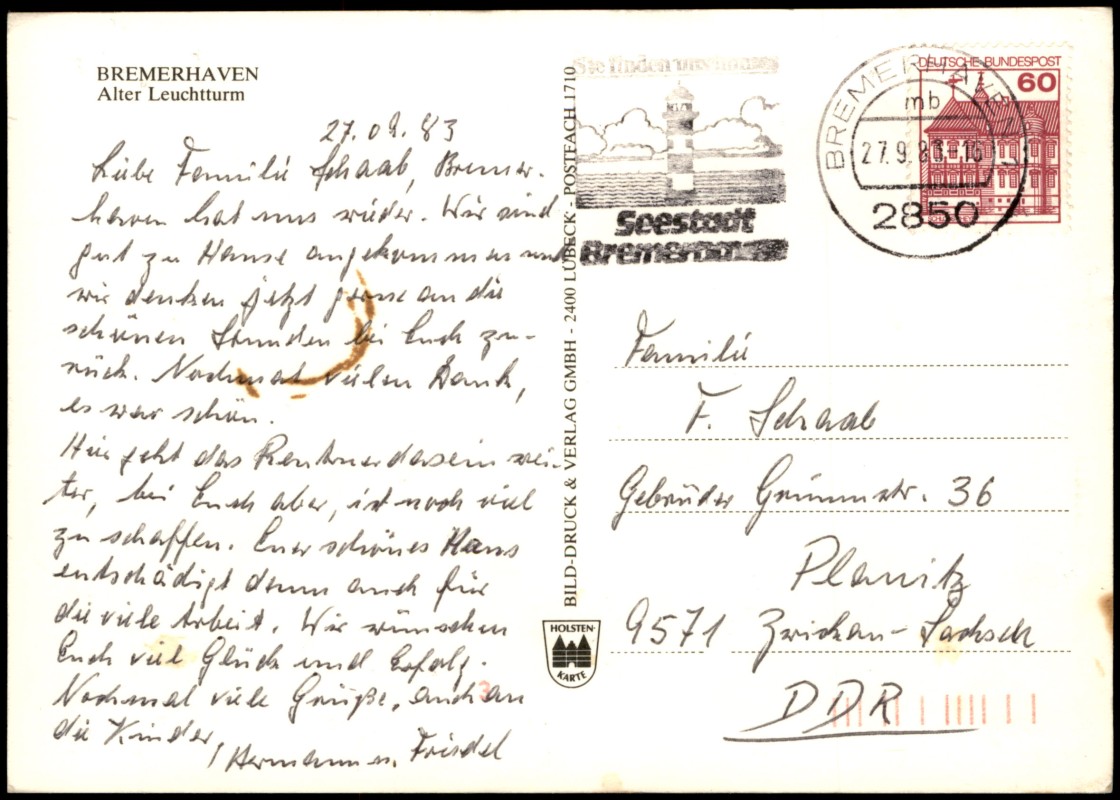 BREMERHAVEN
Alter Leuchtturm
27.09.83
Liebe Familie Schaab, Bremer-
haven hat uns wieder. Wir sind
gut zu Hause angekommen und
wir denken jetzt gerne an die
schönen Stunden bei Euch zu-
rück. Nochmal vielen Dank,
es war schön.
Hier geht das Rentnerdasein wei-
ter, bei Euch aber, ist noch viel
zu schaffen. Euer schönes Haus
entschädigt dann auch für
die viele Arbeit. Wir wünschen
Euch viel Glück und Erfolg.
Nochmal viele Grüße, auch an
die Kinder,
Hermann u. Friedel
BILD-DRUCK & VERLAG GMBH - 2400 LÜBECK - POSTFACH 1710
HOLSTEN-
KARTE
Sie finden uns
Seestadt
Bremerhaven
BREMERHAVEN
mb
27.9.83-16
2850
DEUTSCHE BUNDESPOST
60
Familie
F. Schaab
Gebrüder Grimmstr. 36
Planitz
9571 Zwickau-Sachsen
DDR